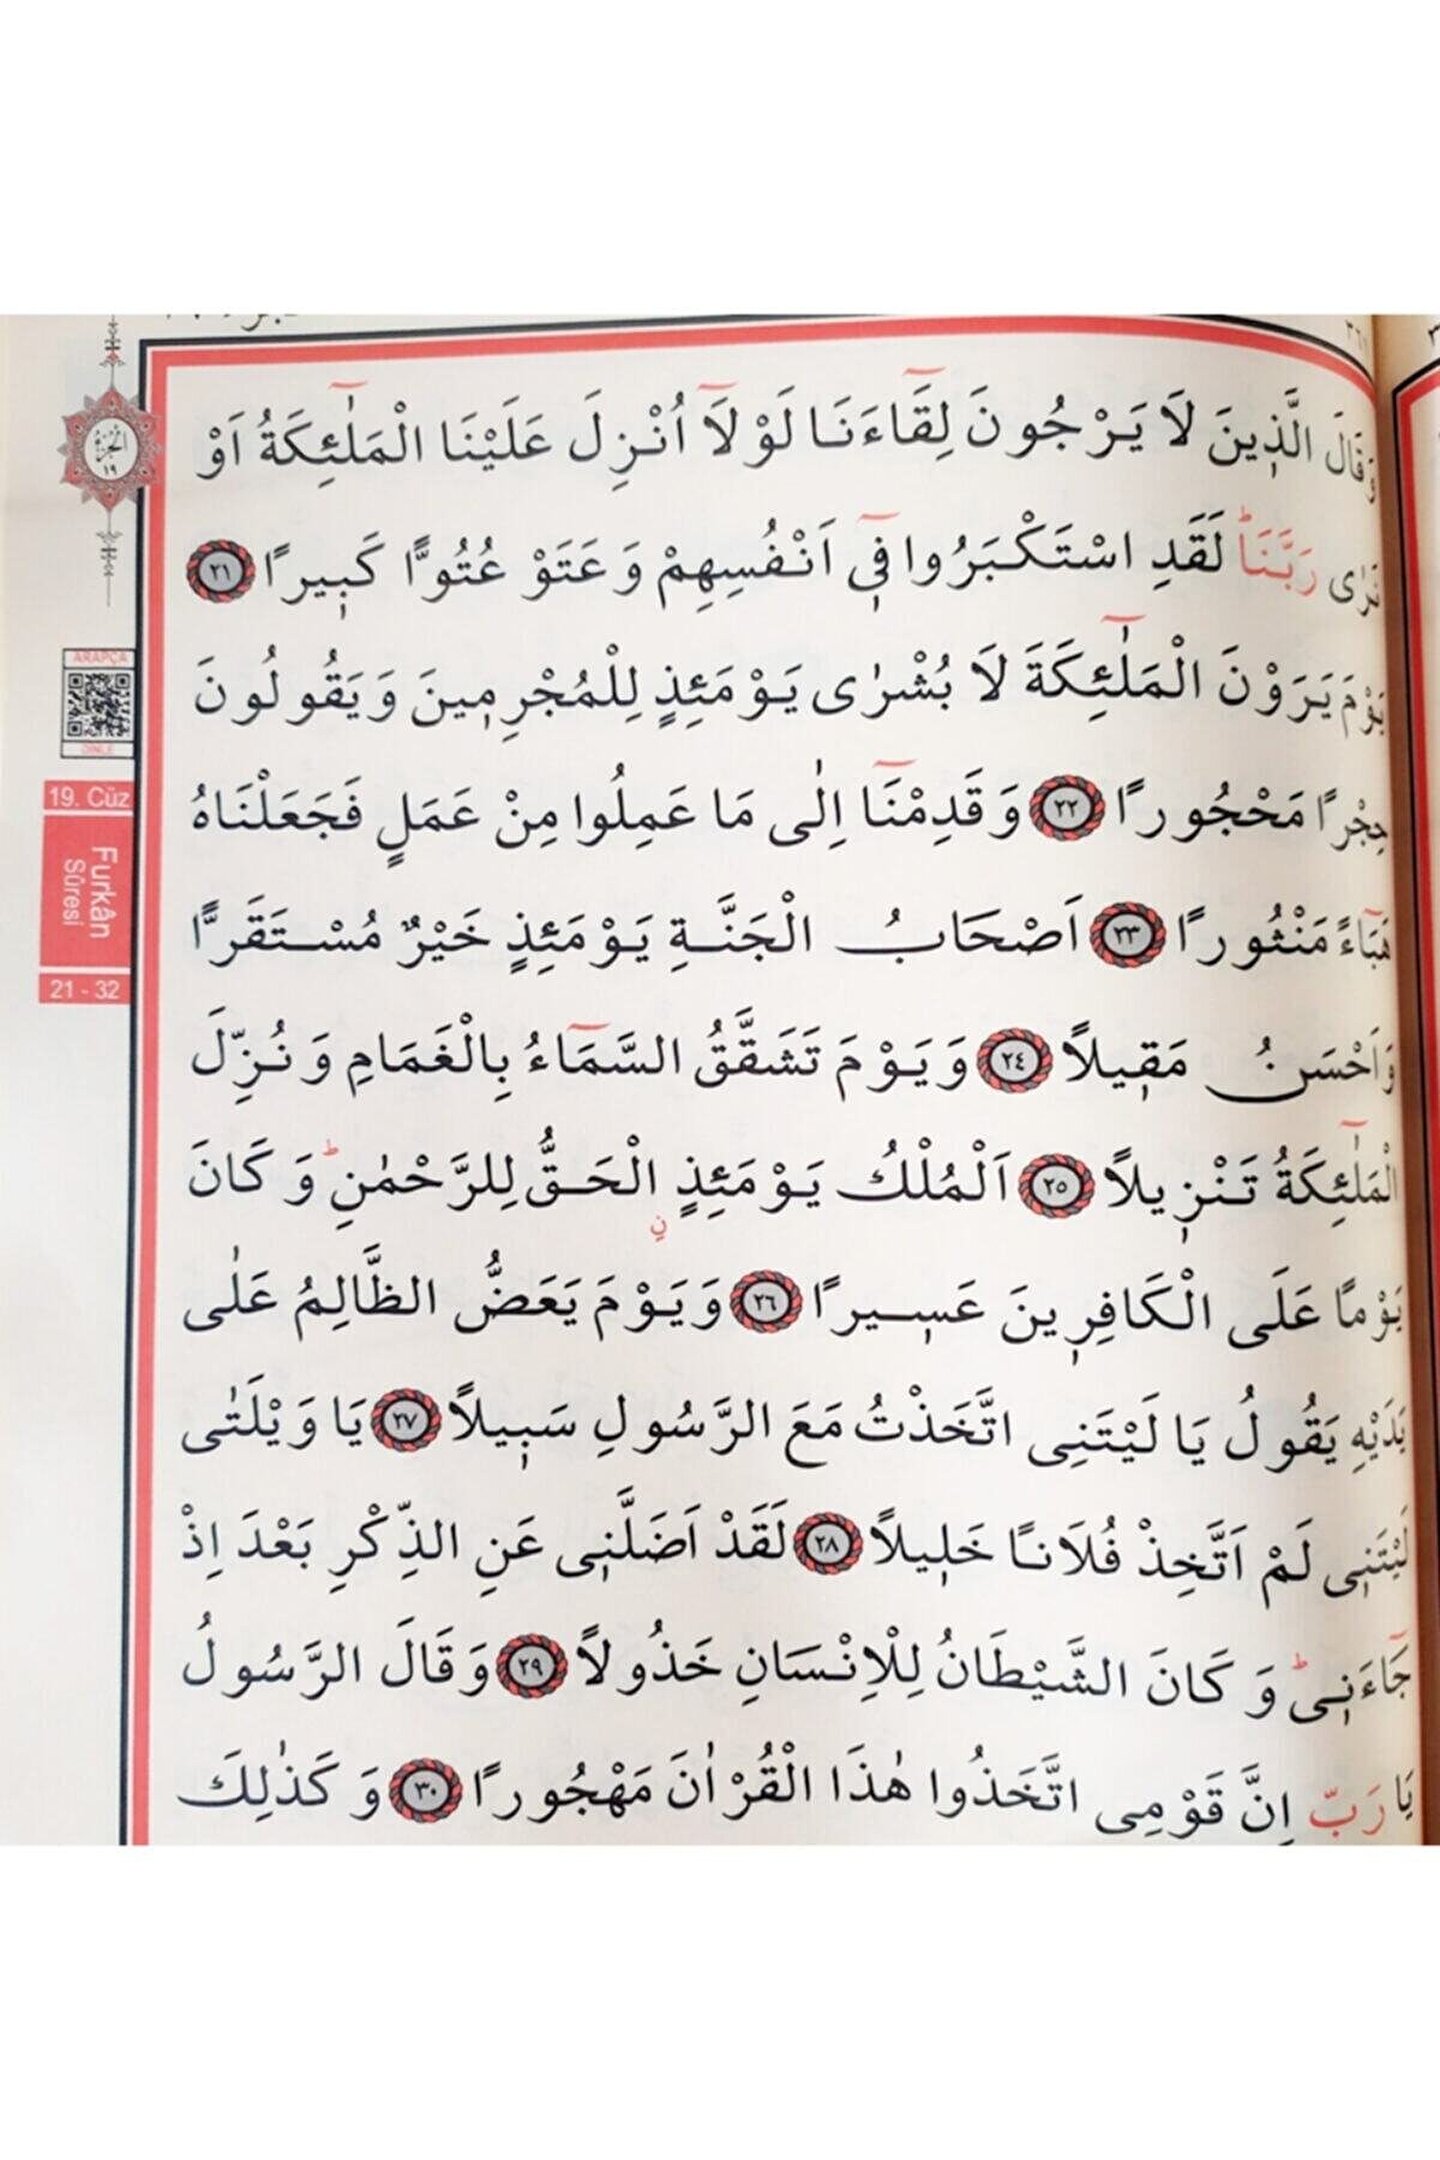 وَقَالَ الَّذ۪ينَ لَا يَرْجُونَ لِقَٓاءَنَا لَوْلَٓا اُنْزِلَ عَلَيْنَا الْمَلٰٓئِكَةُ اَوْ
نَرٰى رَبَّنَاۜ لَقَدِ اسْتَكْبَرُوا ف۪ٓي اَنْفُسِهِمْ وَعَتَوْ عُتُوًّا كَب۪يرًا ٢١
يَوْمَ يَرَوْنَ الْمَلٰٓئِكَةَ لَا بُشْرٰى يَوْمَئِذٍ لِلْمُجْرِم۪ينَ وَيَقُولُونَ
حِجْرًا مَحْجُورًا ٢٢ وَقَدِمْنَٓا اِلٰى مَا عَمِلُوا مِنْ عَمَلٍ فَجَعَلْنَاهُ
هَبَٓاءً مَنْثُورًا ٢٣ اَصْحَابُ الْجَنَّةِ يَوْمَئِذٍ خَيْرٌ مُسْتَقَرًّا
وَاَحْسَنُ مَق۪يلًا ٢٤ وَيَوْمَ تَشَقَّقُ السَّمَٓاءُ بِالْغَمَامِ وَنُزِّلَ
الْمَلٰٓئِكَةُ تَنْز۪يلًا ٢٥ اَلْمُلْكُ يَوْمَئِذٍ الْحَقُّ لِلرَّحْمٰنِۜ وَكَانَ
يَوْمًا عَلَى الْكَافِر۪ينَ عَس۪يرًا ٢٦ وَيَوْمَ يَعَضُّ الظَّالِمُ عَلٰى
يَدَيْهِ يَقُولُ يَا لَيْتَنِى اتَّخَذْتُ مَعَ الرَّسُولِ سَب۪يلًا ٢٧ يَا وَيْلَتٰى
لَيْتَن۪ى لَمْ اَتَّخِذْ فُلَانًا خَل۪يلًا ٢٨ لَقَدْ اَضَلَّن۪ى عَنِ الذِّكْرِ بَعْدَ اِذْ
جَٓاءَن۪ىۜ وَكَانَ الشَّيْطَانُ لِلْاِنْسَانِ خَذُولًا ٢٩ وَقَالَ الرَّسُولُ
يَا رَبِّ اِنَّ قَوْمِى اتَّخَذُوا هٰذَا الْقُرْاٰنَ مَهْجُورًا ٣٠ وَكَذٰلِكَ
الجزء
١٩
ARAPÇA
DİNLE
19. Cüz
Furkân
Sûresi
21 - 32